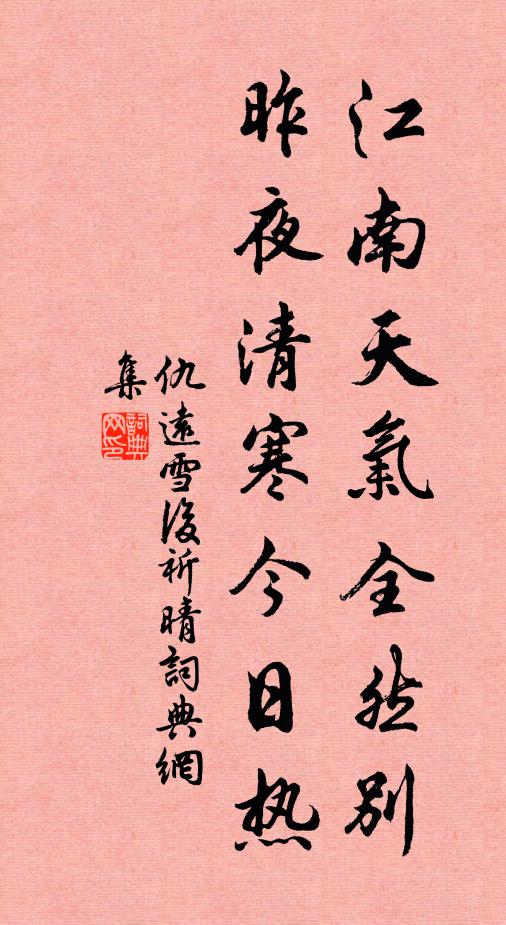 江南天氣全然别
昨夜清寒今日热
仇遠雪後祈晴詞典網
集
詞典网印